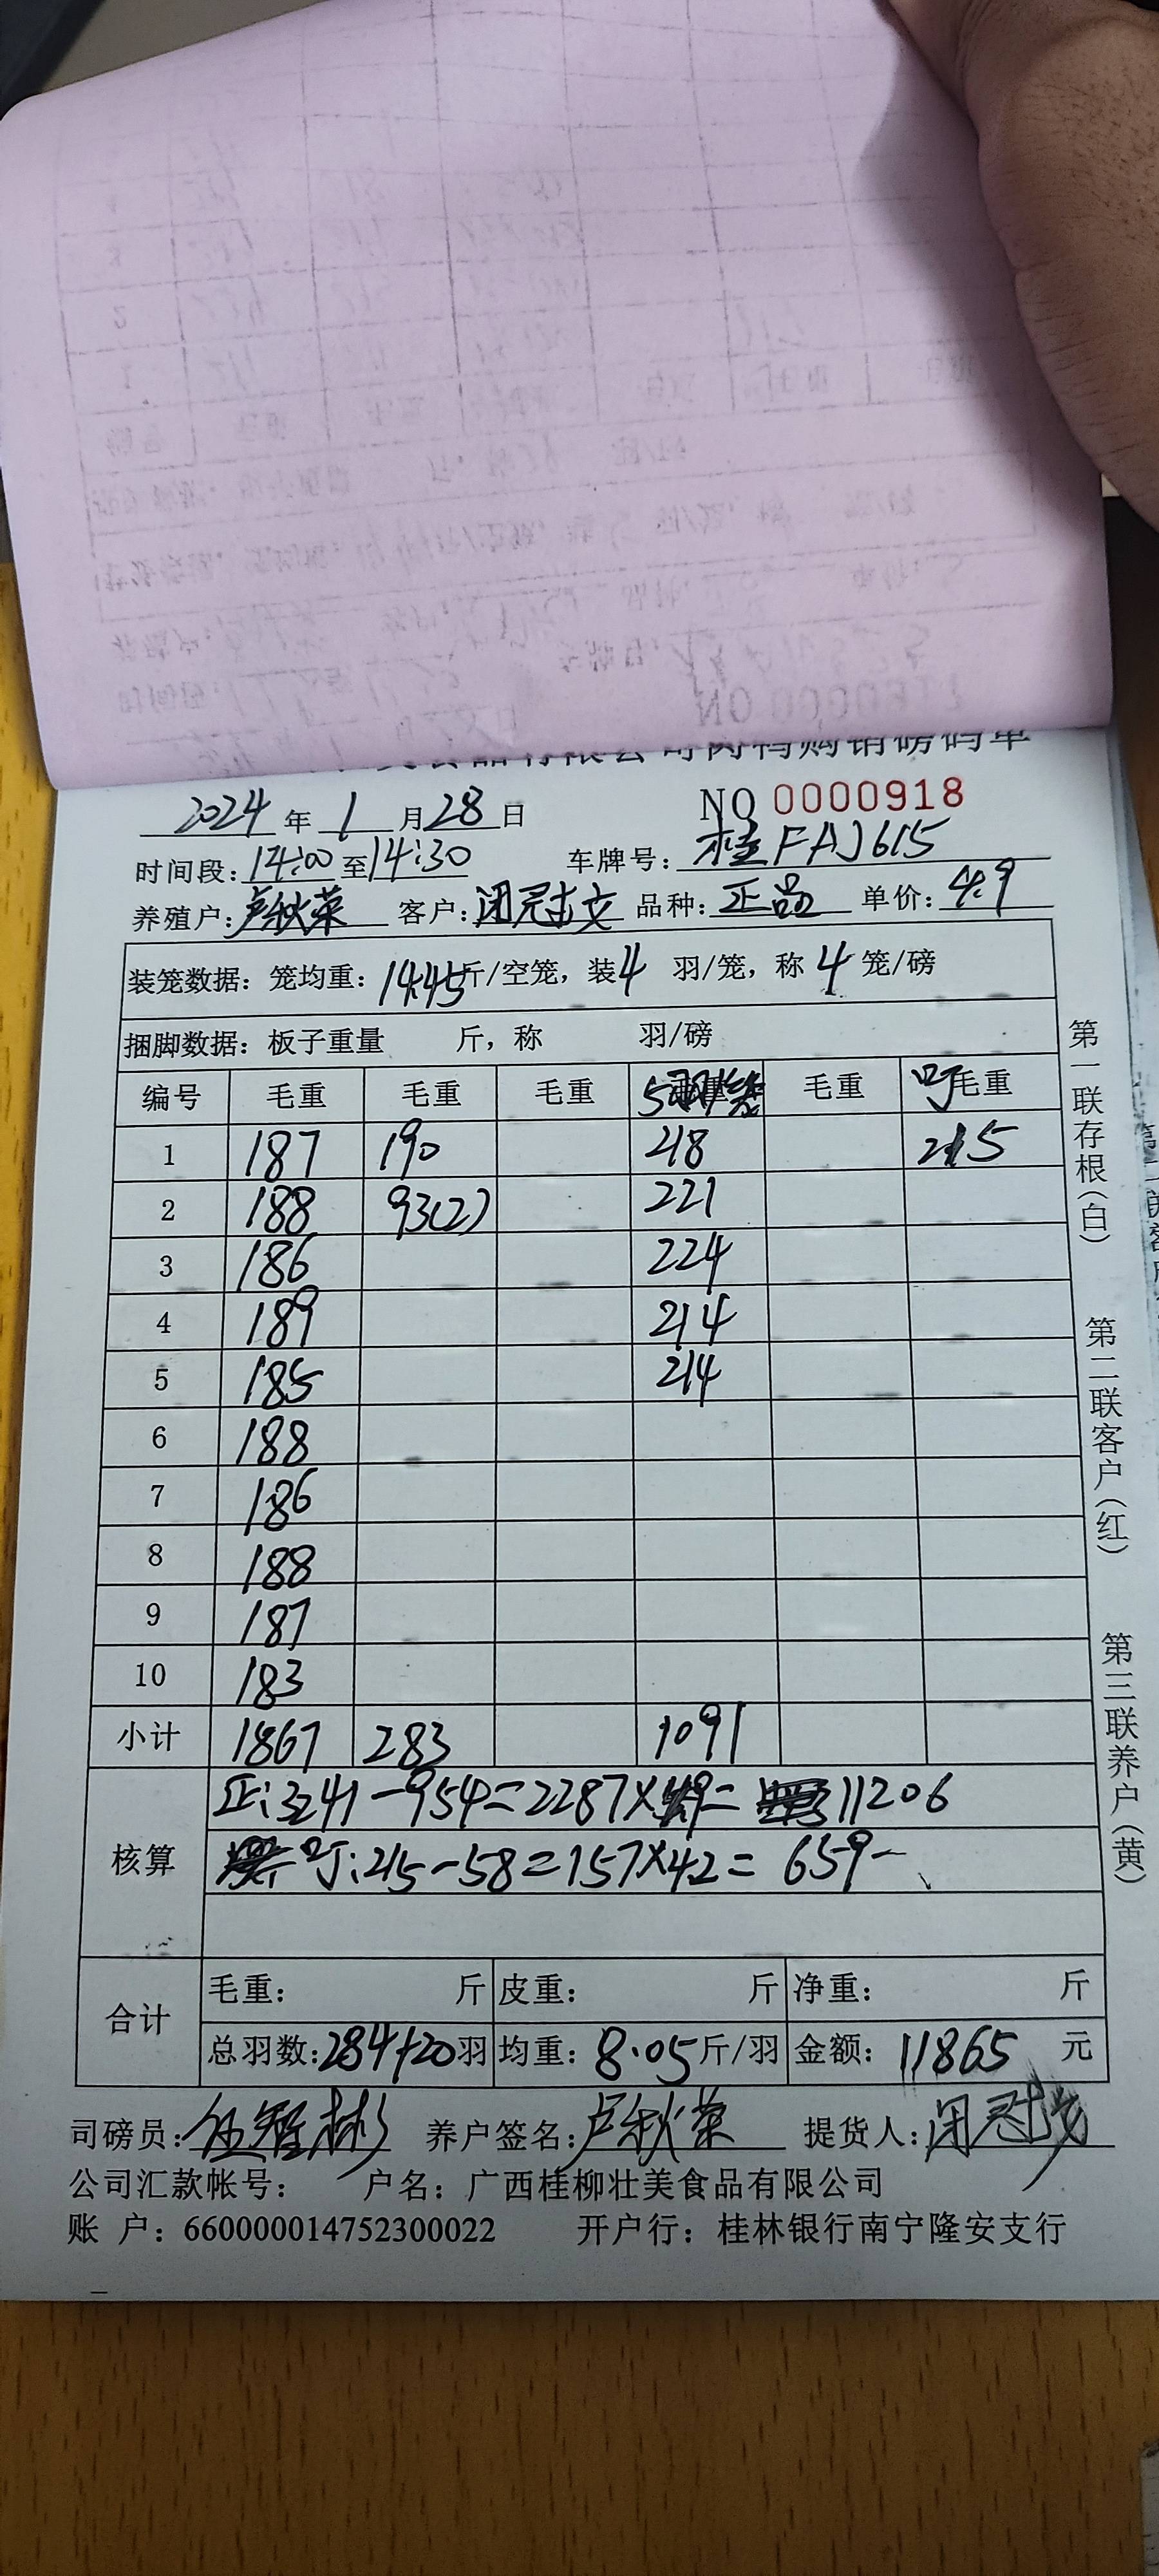 食品有限公司肉鸭购销磅码单
2024年1月28日 NO 0000918
时间段:14:00至14:30 车牌号:桂FAJ615
养殖户:卢秋荣 客户:闭冠文 品种:正品 单价:4.9
装笼数据: 笼均重: 14.45斤/空笼, 装4 羽/笼, 称4笼/磅
捆脚数据: 板子重量 斤, 称 羽/磅
编号 毛重 毛重 毛重 5羽/笼 毛重 叮毛重
1 187 190 218 215
2 188 93(2) 221
3 186 224
4 189 214
5 185 214
6 188
7 186
8 188
9 187
10 183
小计 1867 283 1091
核算
正:3241-954=2287×4.9= 11206
叮:215-58=157×4.2= 659-
合计
毛重: 斤 皮重: 斤 净重: 斤
总羽数:284+20羽 均重: 8.05斤/羽 金额: 11865 元
司磅员:伍智彬 养户签名:卢秋荣 提货人:闭冠文
公司汇款帐号: 户名: 广西桂柳壮美食品有限公司
账 户: 660000014752300022 开户行: 桂林银行南宁隆安支行
第一联存根(白)
第二联客户(红)
第三联养户(黄)